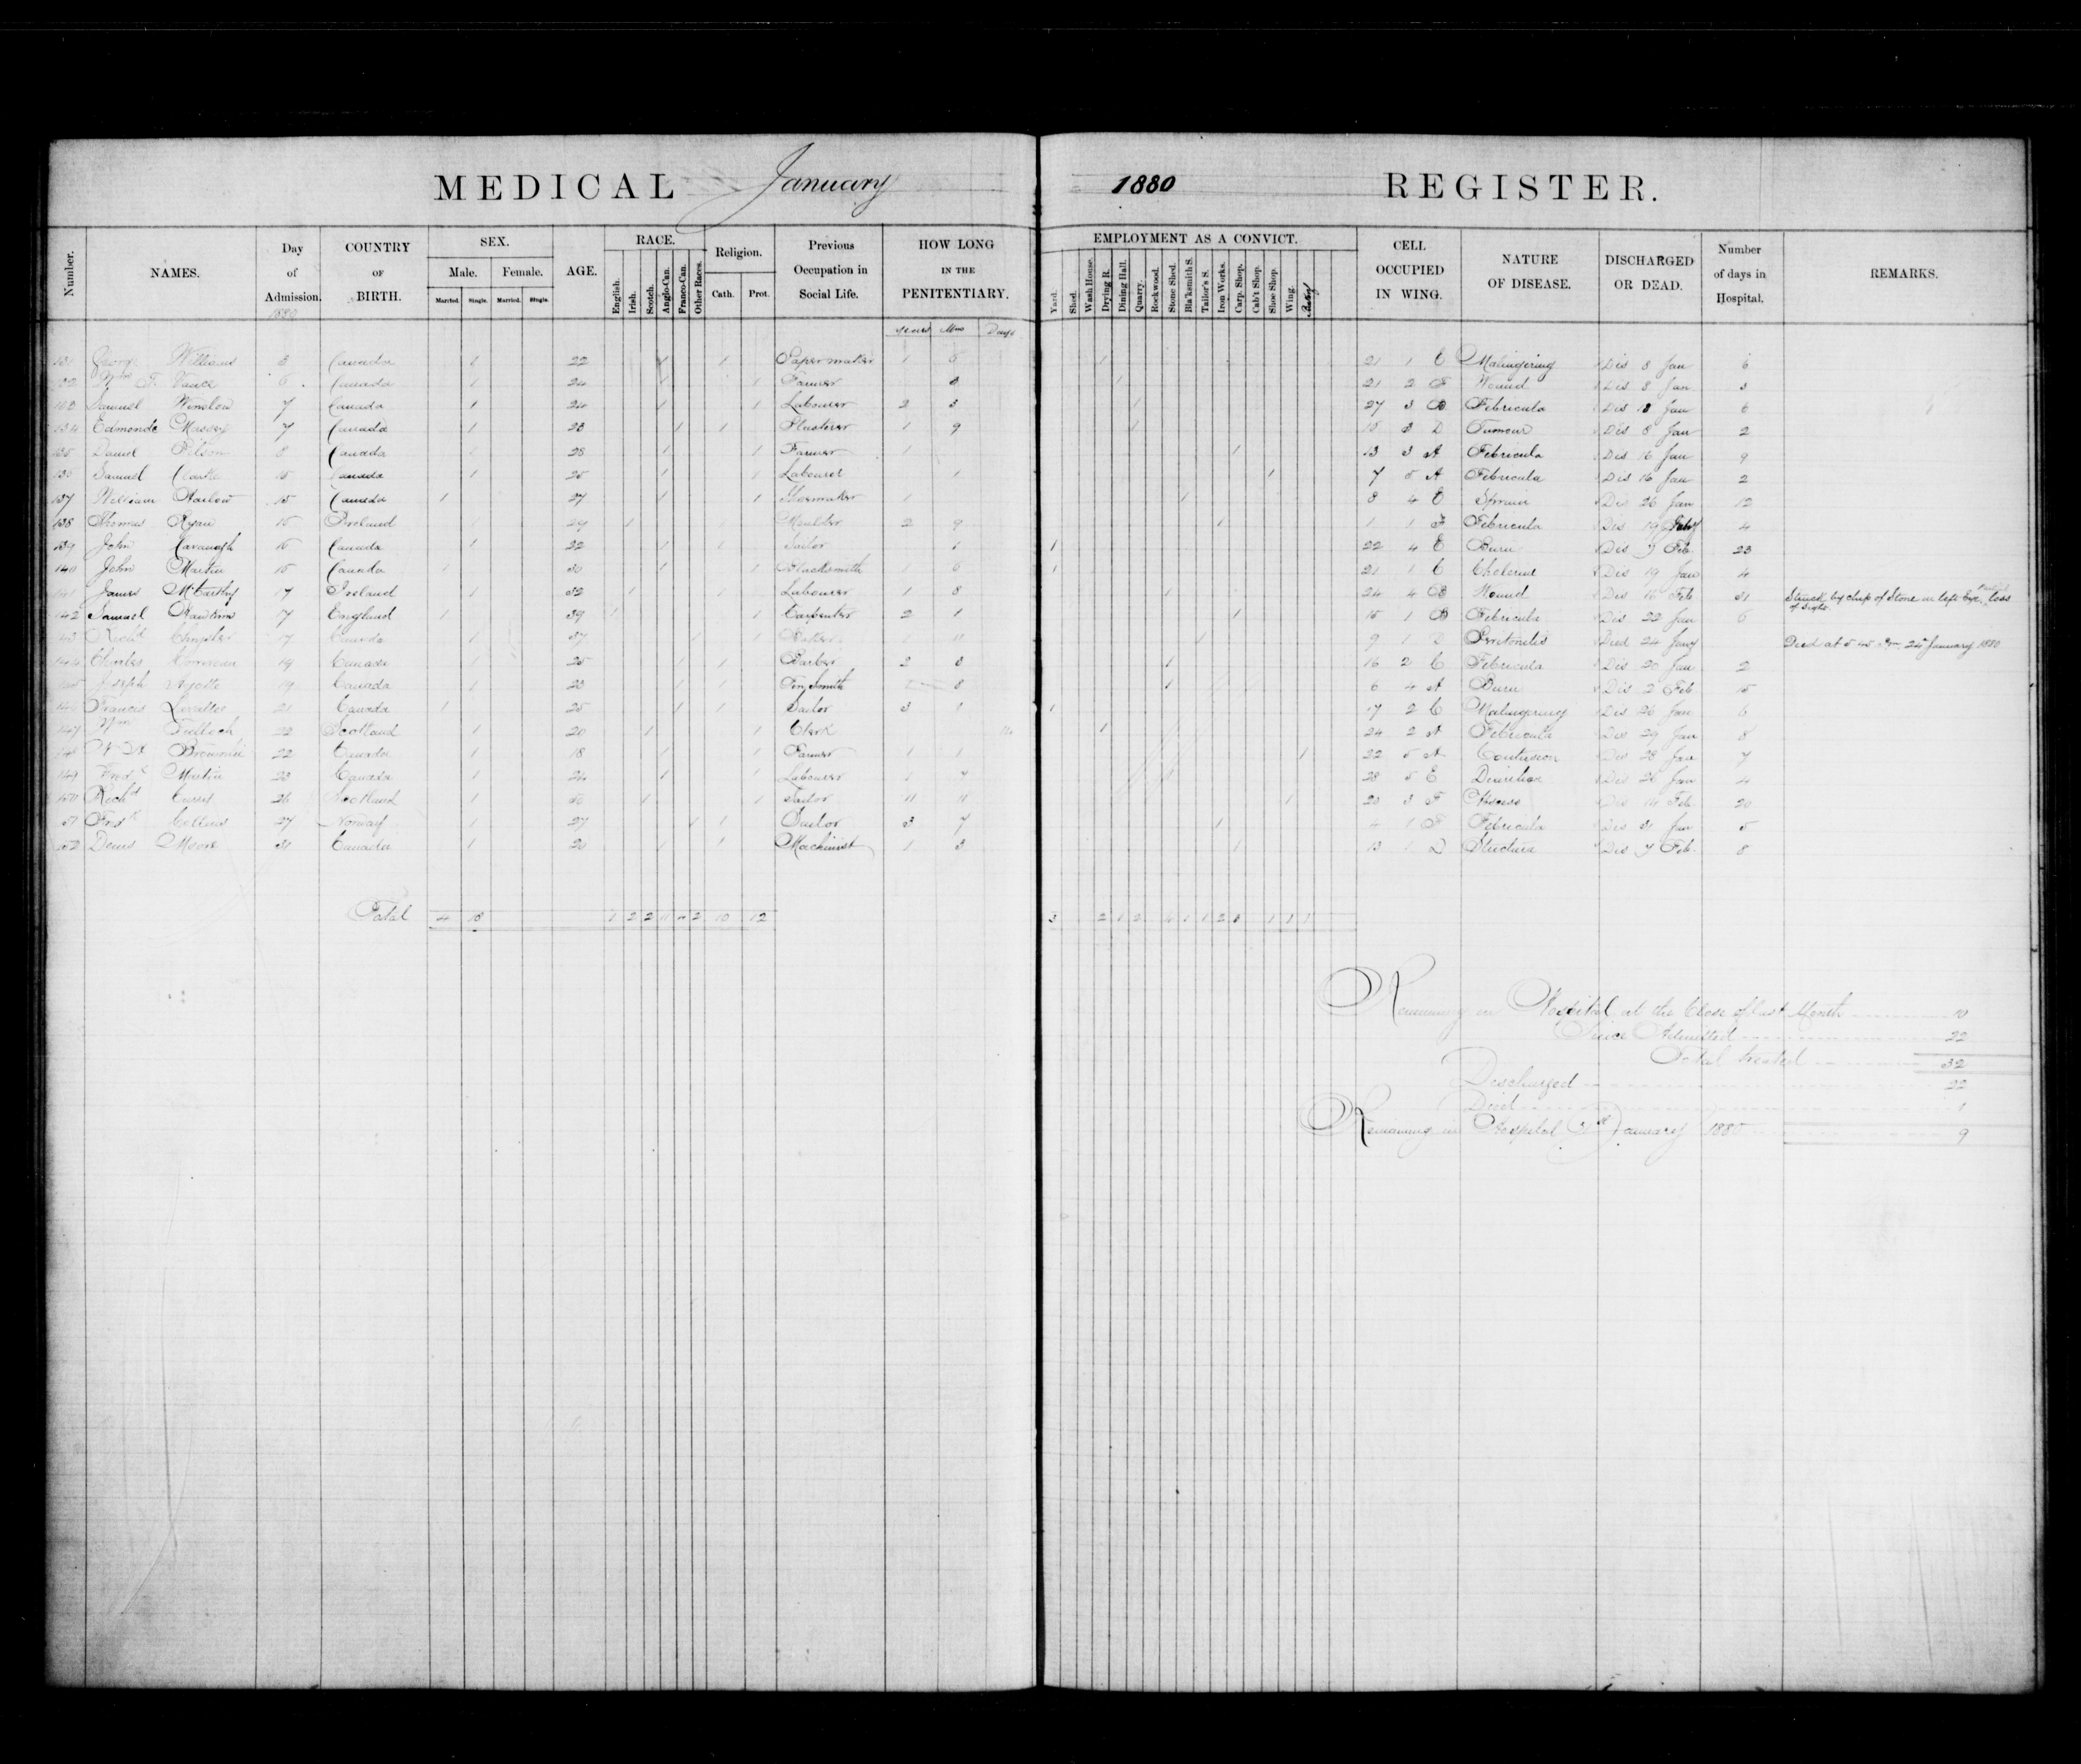 MEDICAL January 1880 REGISTER.
Number. NAMES. Day of Admission. 1880 COUNTRY OF BIRTH. SEX. Male. Female. Married. Single. Married. Single. AGE. RACE. English. Irish. Scotch. Anglo-Can. Franco-Can. Other Races. Religion. Cath. Prot. Previous Occupation in Social Life. HOW LONG IN THE PENITENTIARY. years Mos Days EMPLOYMENT AS A CONVICT. Yard. Shed. Wash House. Drying R. Dining Hall. Quarry. Rockwood. Stone Shed. Bla'ksmith S. Tailor's S. Iron Works. Carp. Shop. Cab't Shop. Shoe Shop. Wing. CELL OCCUPIED IN WING. NATURE OF DISEASE. DISCHARGED OR DEAD. Number of days in Hospital. REMARKS.
131 George Williams 3 Canada 1 22 1 1 Papermaker 1 5 1 21 1 E Malingering Dis 8 Jan 6
132 Wm F. Vance 6 Canada 1 24 1 1 Farmer 8 1 21 2 F Wound Dis 8 Jan 3
133 Samuel Winslow 7 Canada 1 24 1 1 Labourer 2 3 1 27 3 B Febricula Dis 13 Jan 6
134 Edmonde Massey 7 Canada 1 23 1 1 Plasterer 1 9 1 15 3 D Tumour Dis 8 Jan 2
135 Daniel 8 Canada 1 28 1 1 Farmer 1 1 13 3 A Febricula Dis 16 Jan 9
136 Samuel 15 Canada 1 25 1 1 Labourer 1 1 7 5 A Febricula Dis 16 Jan 2
137 William Harlow 15 Canada 1 27 1 1 Shoemaker 1 1 1 8 4 E Sprain Dis 26 Jan 12
138 Thomas Ryan 15 Ireland 1 29 1 1 Moulder 2 9 1 1 1 F Febricula Dis 19 4
139 John Kavanagh 15 Canada 1 22 1 1 Sailor 1 1 22 4 E Burn Dis 7 Feb 23
140 John Martin 15 Canada 1 30 1 1 Blacksmith 6 1 21 1 C Cholerine Dis 19 Jan 4
141 James McCarthy 17 Ireland 1 32 1 1 Labourer 1 8 1 24 4 B Wound Dis 16 Feb 31 Struck by chip of Stone in left Eye. Partial loss
of sight.
142 Samuel Hawkins 17 England 1 39 1 1 Carpenter 2 1 1 15 1 B Febricula Dis 22 Jan 6
143 Richd Chrysler 17 Canada 1 37 1 1 Baker 11 1 9 1 D Peritonitis Died 24 Jany Died at 5.45 Pm 24 January 1880
144 Charles 19 Canada 1 25 1 1 Barber 2 3 1 16 2 C Febricula Dis 20 Jan 2
145 Joseph Ayotte 19 Canada 1 23 1 1 Tin Smith 8 1 6 4 A Burn Dis 2 Feb 15
146 Francis Lavallee 21 Canada 1 25 1 1 Sailor 3 1 1 17 2 C Malingering Dis 26 Jan 6
147 Wm Tulloch 22 Scotland 1 20 1 1 Clerk 1 24 2 A Febricula Dis 29 Jan 8
148 22 Canada 1 18 1 1 Farmer 1 1 1 22 5 A Contusion Dis 28 Jan 7
149 Fredk Martin 23 Canada 1 24 1 1 Labourer 1 7 1 28 5 E Diarrhea Dis 26 Jan 4
150 Richd 26 Scotland 1 1 1 Tailor 11 11 1 20 3 F Abscess Dis 14 Feb 20
151 Fredk Collins 27 Norway 1 27 1 1 Sailor 3 7 1 4 1 F Febricula Dis 31 Jan 5
152 Denis Moore 31 Canada 1 20 1 1 Machinist 1 3 1 13 1 D Stricture Dis 7 Feb 8
Total 4 18 1 2 2 11 4 2 10 12 3 2 1 2 4 1 1 2 3 1 1 1
Remaining in Hospital at the Close of last Month 10
Since Admitted 22
Total treated 32
Discharged 22
Died 1
Remaining in Hospital 31st January 1880 9